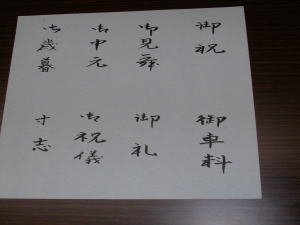 御祝
御見舞
御中元
御歳暮
御車料
御礼
御祝儀
寸志